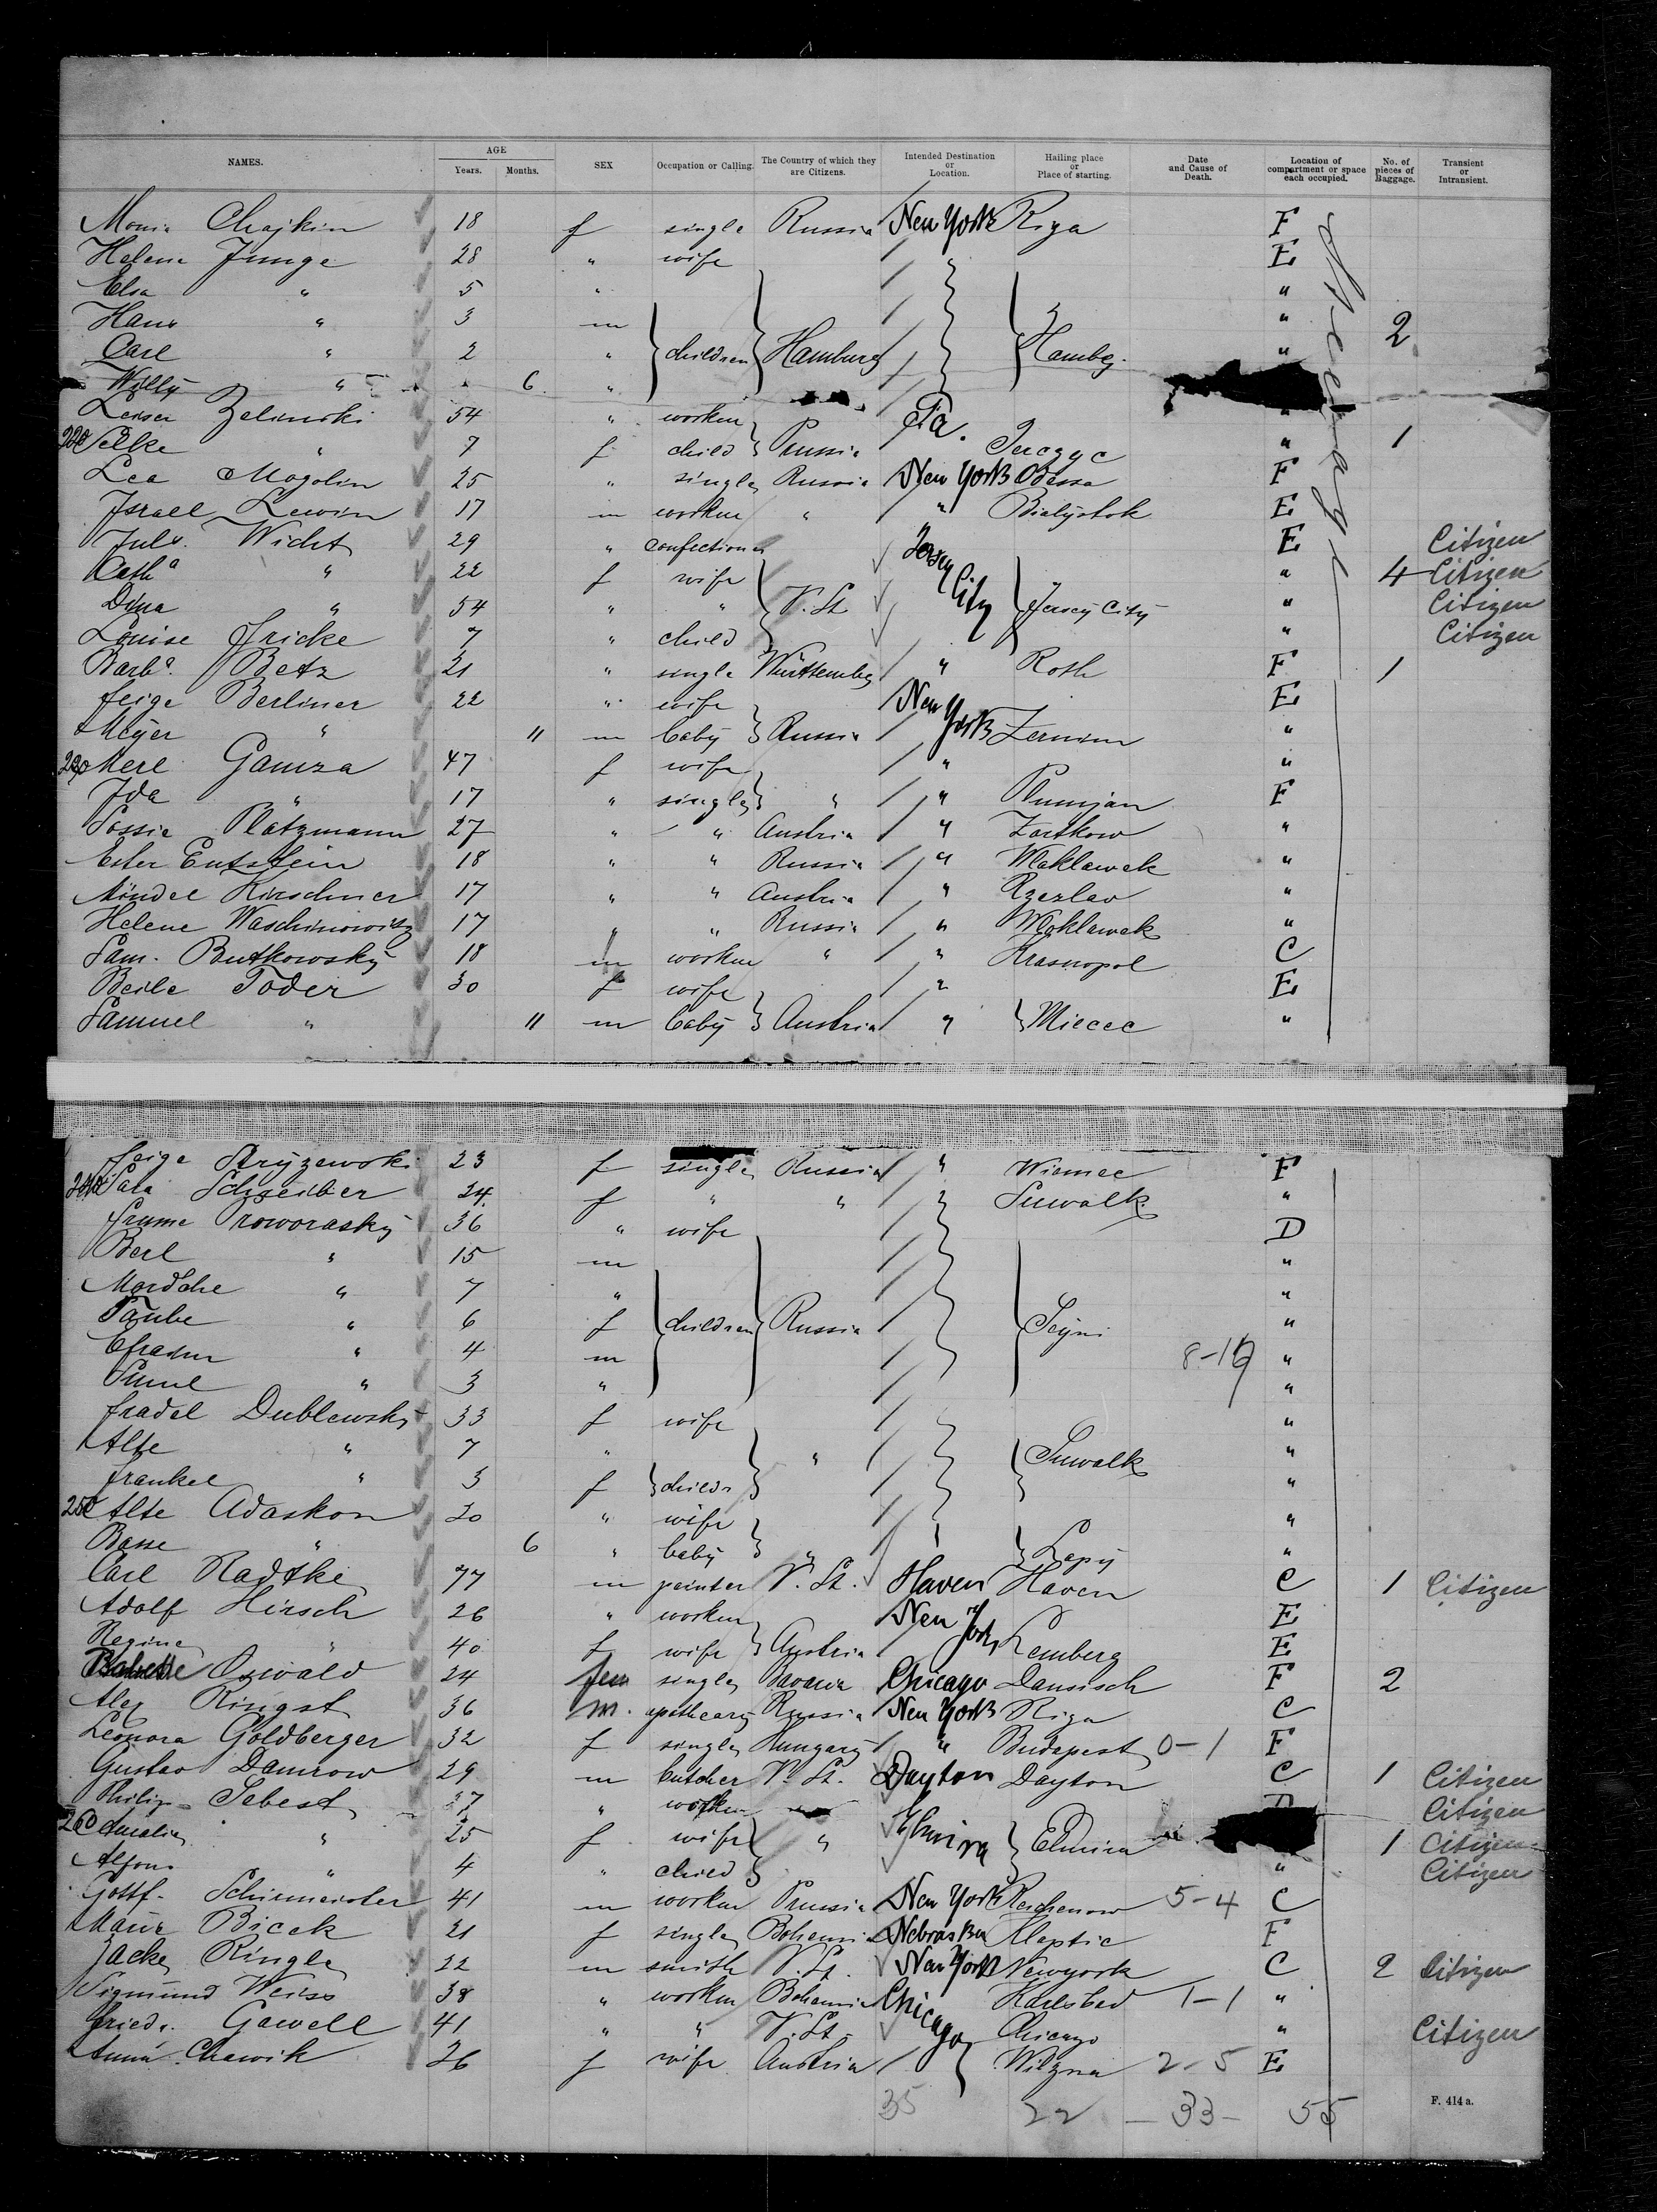 NAMES. AGE Years. Months. SEX Occupation or Calling. The Country of which they are Citizens. Intended Destination or Location. Hailing place or Place of starting. Date and Cause of Death. Location of compartment or space each occupied. No. of pieces of Baggage. Transient or Intransient.
Chajkin 18 f single Russia New York Riga F
Helene Junge 28 " wife E
Elsa " 5 " "
Hans " 3 m " 2
Carl " 2 " children Hamburg Hambg. "
Willy " 6 "
Leiser Zelinski 54 " worker Pa. "
220 " 7 f child " 1
Lea Mogolin 25 " single Russia New York Odessa F
Israel Lewin 17 m worker " " Bialystok E
Juls. Wicht 29 " confectioner Jersey City E Citizen
Catha " 22 f wife " 4 Citizen
Dina " 54 " " V. St. Jersey City " Citizen
Louise Fricke 7 " child " Citizen
Barba. Betz 21 " single Württembg " Roth F 1
Feige Berliner 22 " wife New York E
Meyer " 11 m baby Russia "
230 Merl Gamza 47 f wife " "
Ida " 17 " single " " Plumjan F
Sossie Platzmann 27 " " Austria " "
Ester Entstein 18 " " Russia " Wloklawek "
Mindel Kirschner 17 " " Austria " "
Helene 17 " " Russia " Wloklawek "
Sam. Butkowsky 18 m worker " " Krasnopol C
Beile Toder 30 f wife " E
Samuel " 11 m baby Austria " Mielec "
Feige 23 f single Russia " F
240 Sara Schreiber 24 f " " " Suwalk "
Frume 36 " wife D
Berl " 15 m "
Mordche " 7 " "
Taube " 6 f children Russia Sejni "
" 4 m 8-19 "
" 3 " "
Fradel Dublewsky 33 f wife "
Alte " 7 " " Suwalk "
Frankel " 3 f "
250 Alte Adaskon 20 " wife "
Basse " 6 " baby " Lapy "
Carl Radtke 77 m painter V. St. Haven Haven C 1 Citizen
Adolf Hirsch 26 " worker New York E
Regine " 40 f wife Austria Lemberg E
Babette Oswald 24 fem single Bavaria Chicago F 2
Alex Ringst 36 m. apothecary Russia New York Riga C
Leonora Goldberger 32 f single Hungary " Budapest 0-1 F
Gustav Damrow 29 m butcher V. St. Dayton Dayton C 1 Citizen
Philip Sebest 37 " worker Citizen
260 Amalie " 25 f wife " Elmira Elmira 1 Citizen
Alfons " 4 " child " Citizen
Gottf. Schirmeister 41 m worker Prussia New York 5-4 C
Bicek 21 f single Bohemia Nebraska F
Ringle 22 m smith V. St. New York Newyork C 2 Citizen
Sigmund Weiss 38 " worker Bohemia Chicago Karlsbad 1-1 "
Friedr. Gawell 41 " " V. St. Chicago " Citizen
Anna Chawik 26 f wife Austria 2-5 E
35 22 - 33 - 55
Steerage
F. 414 a.